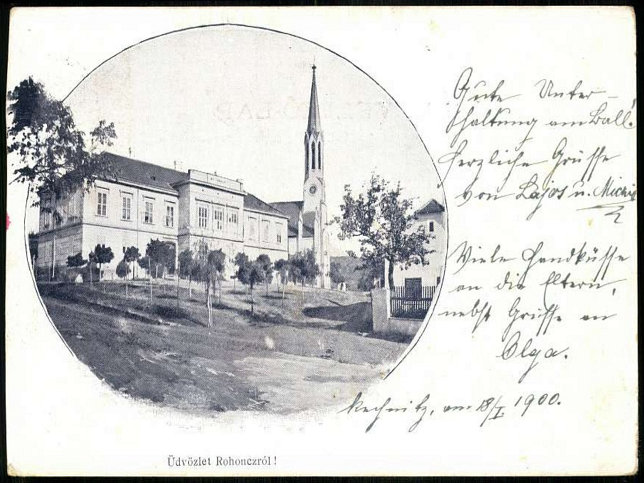 Gute Unter-
haltung am Ball.
Herzliche Grüsse
von Lajos u. Michi
Viele Handküsse
an die Eltern,
nebst Grüsse an
Olga.
Rechnitz, am 18/I 1900.
Üdvözlet Rohonczról!